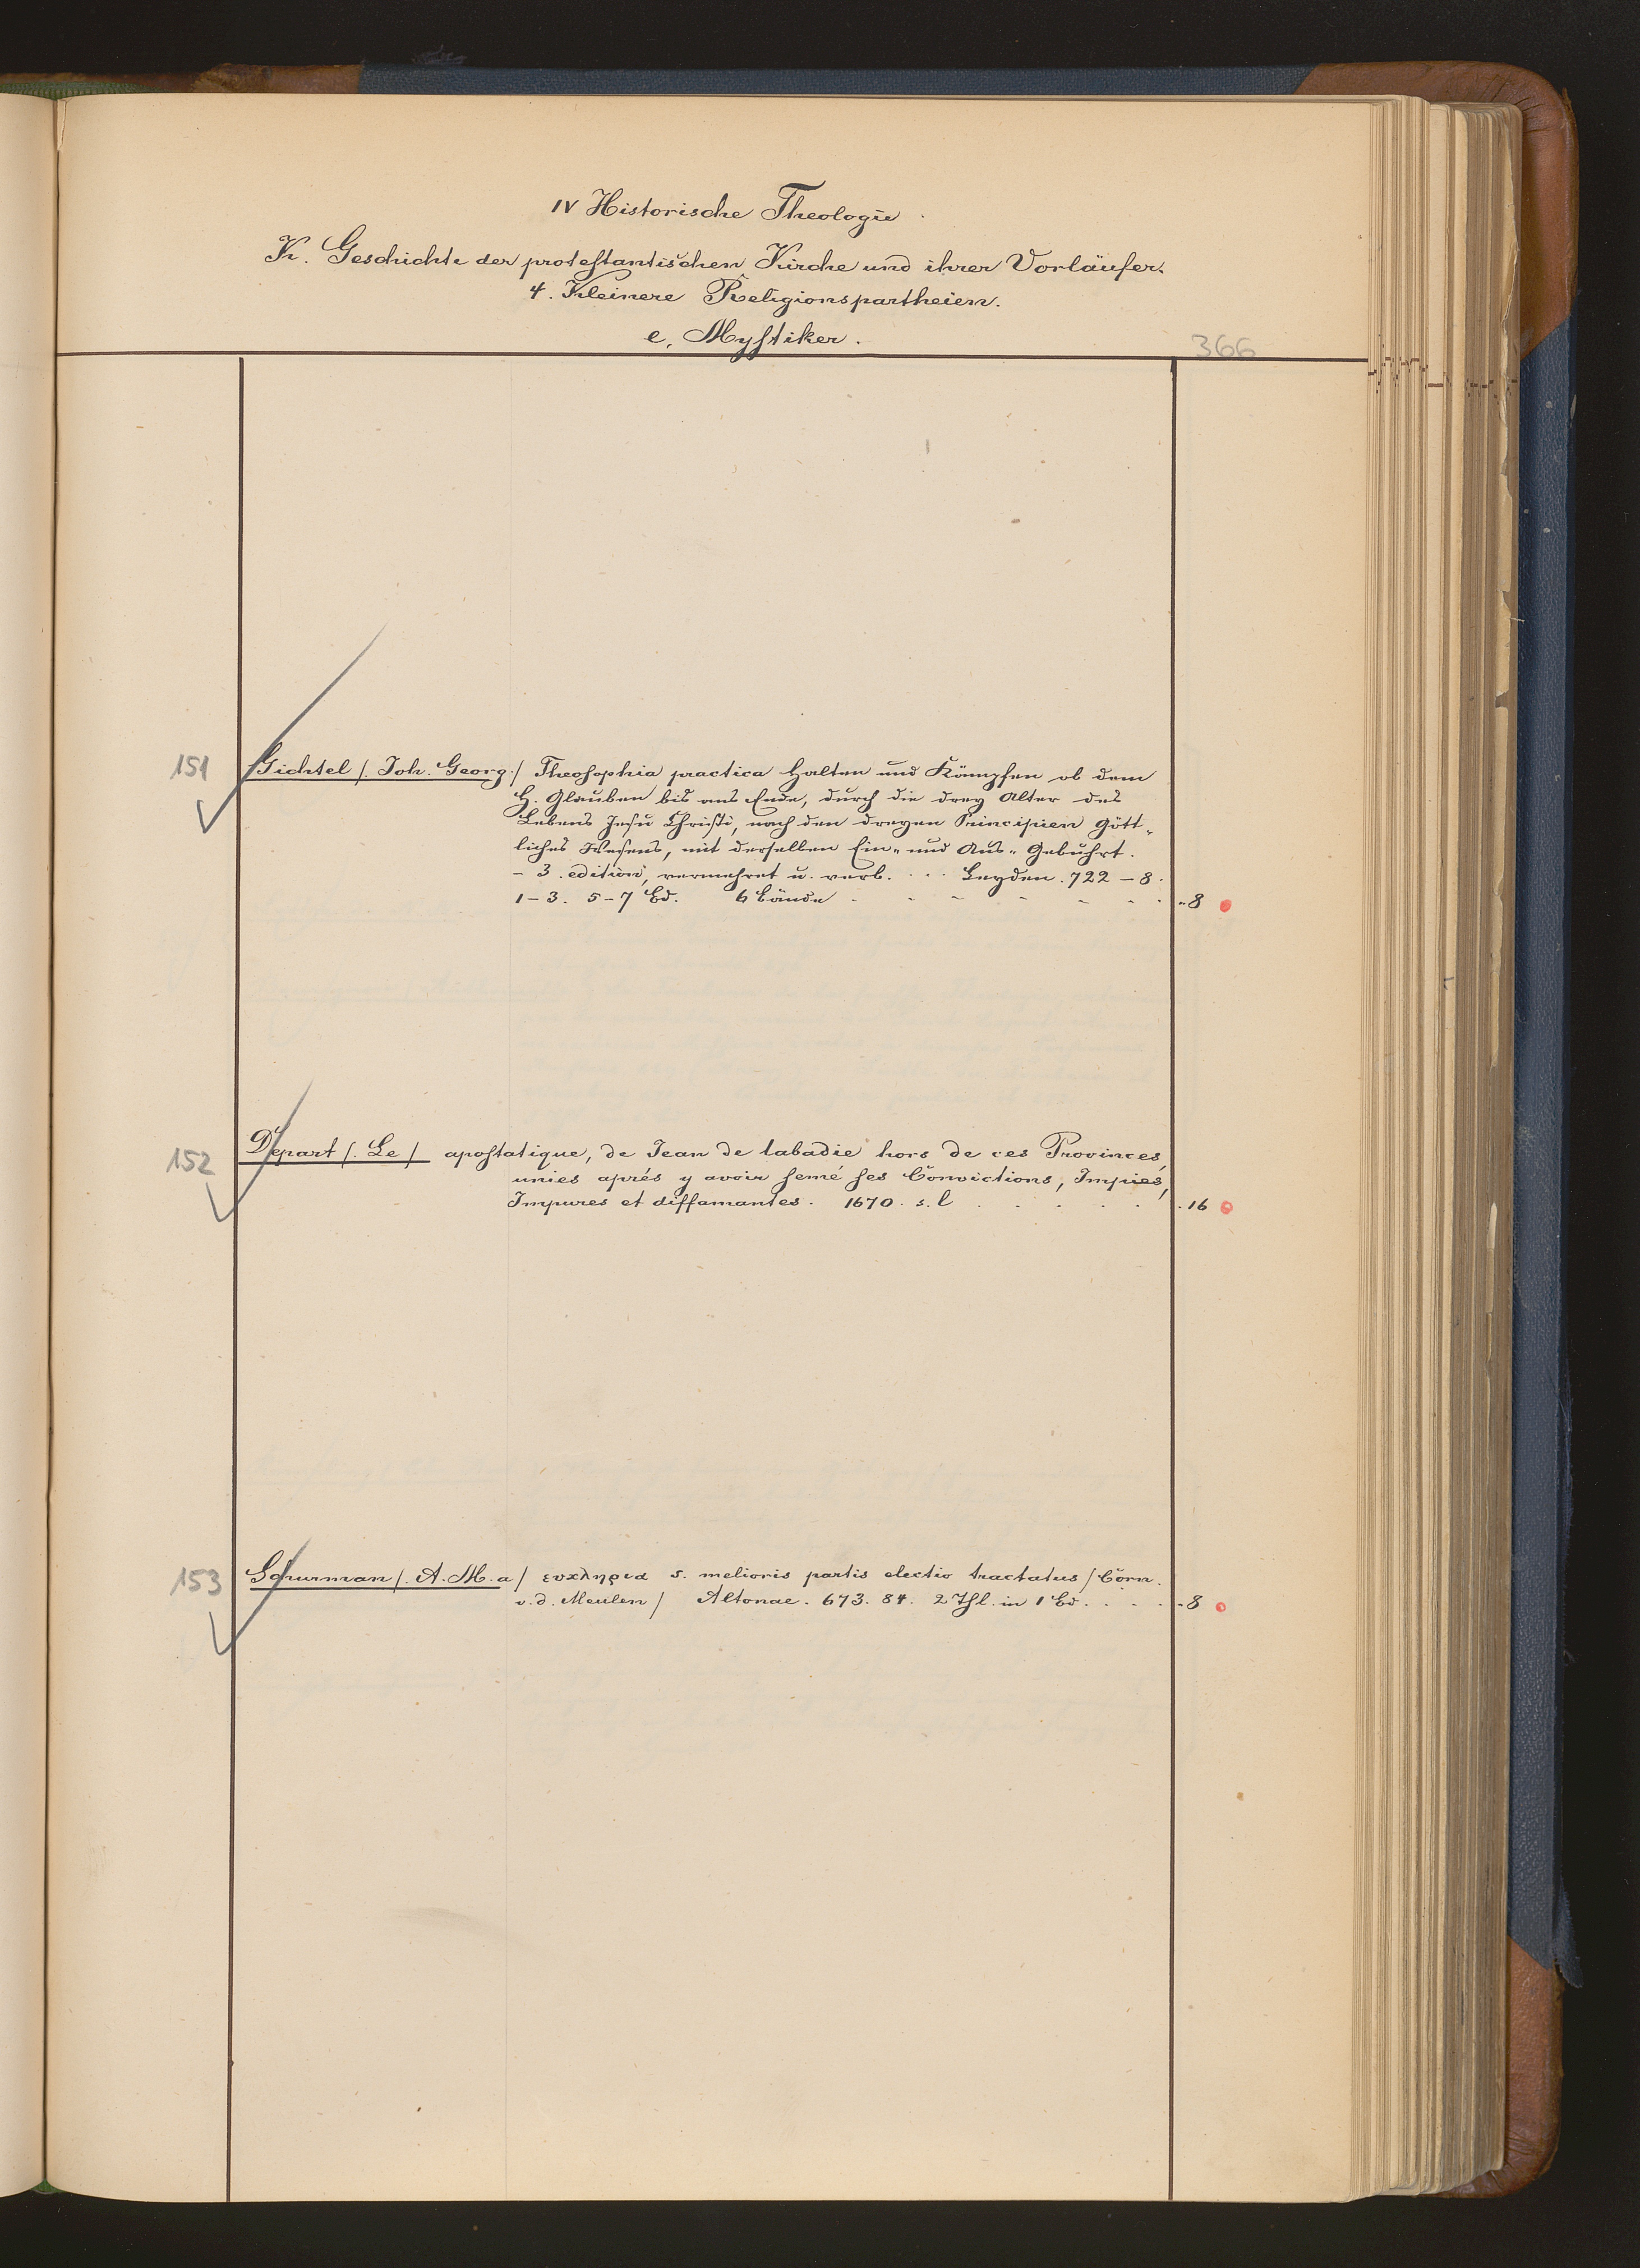 IV Historische Theologie
K. Geschichte der protestantischen Kirche und ihrer Vorläufer.
4. Kleinere Religionspartheien.
e, Mystiker.
366
151 Gichtel /. Joh. Georg./ Theosophia practica Halten und Kämpfen ob dem
H. Glauben bis ans Ende, durch die drey Alter des
Lebens Jesu Christi, nach den dreyen Principien Gött-
liches Wesens, mit derselben Ein- und Aus-Gebuhrt.
– 3. edition, vermehret u. verb. . . . Leyden. 722 – 8.
1–3. 5–7 Bd. 6 Bände . . . . . . . 8
152 Depart /. Le / apostatique, de Jean de labadie hors de ces Provinces,
unies aprés y avoir semé ses Convictions, Impies,
Impures et diffamantes. 1670. s. l . . . . . 16
153 Schurman /. A. M. a / ευκληρια s. melioris partis electio tractatus / Corn.
v. d. Meulen / Altonae. 673. 84. 2 Thl. in 1 Bd. . . . . 8